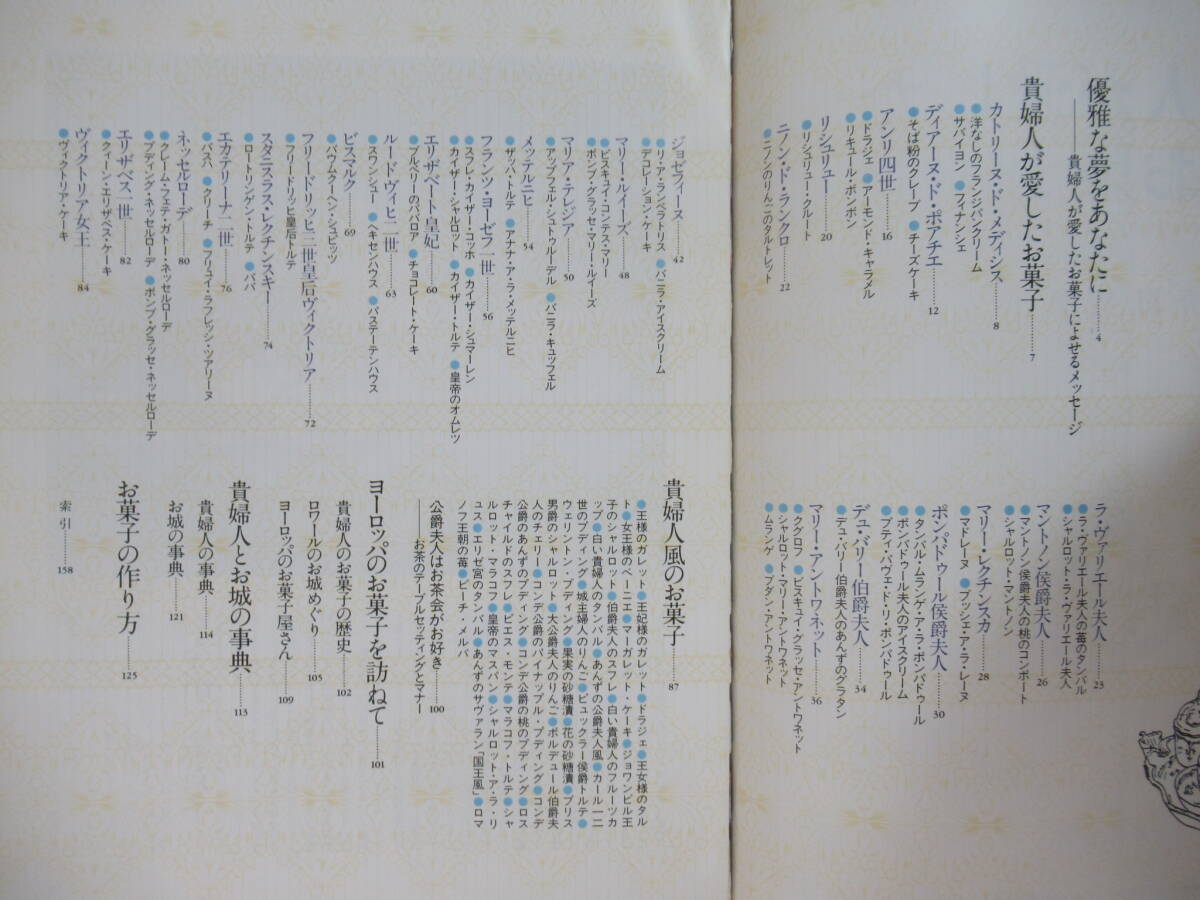 優雅な夢をあなたに……4
――貴婦人が愛したお菓子によせるメッセージ
貴婦人が愛したお菓子……7
カトリーヌ・ド・メディシス……8
●洋なしのフランジパンクリーム
●サバイヨン ●フィナンシェ
ディアーヌ・ド・ポアチエ……12
●そば粉のクレープ ●チーズケーキ
アンリ四世……16
●ドラジェ ●アーモンド・キャラメル
●リキュール・ボンボン
リシュリュー……20
●リシュリュー・クルート
ニノン・ド・ランクロ……22
●ニノンのりんごのタルトレット
ラ・ヴァリエール夫人……23
●ラ・ヴァリエール夫人の苺のタンバル
●シャルロット・ラ・ヴァリエール夫人
マントノン侯爵夫人……26
●マントノン侯爵夫人の桃のコンポート
●シャルロット・マントノン
マリー・レクチンスカ……28
●マドレーヌ ●ブッシェ・ア・ラ・レーヌ
ポンパドゥール侯爵夫人……30
●タンバル・ムランゲ・ア・ラ・ポンパドゥール
●ポンパドゥール夫人のアイスクリーム
●プティ・パヴェ・ド・リ・ポンパドゥール
デュ・バリー伯爵夫人……34
●デュ・バリー伯爵夫人のあんずのグラタン
マリー・アントワネット……36
●クグロフ ●ビスキュイ・グラッセ・アントワネット
●シャルロット・マリー・アントワネット
●ムランゲ ●プダン・アントワネット
ジョゼフィーヌ……42
●リ・ア・ランペラトリス ●バニラ・アイスクリーム
●デコレーション・ケーキ
マリー・ルイーズ……48
●ビスキュイ・コンテス・マリー
●ボンブ・グラッセ・マリー・ルイーズ
マリア・テレジア……50
●アップフェル・シュトゥルーデル ●バニラ・キュッフェル
メッテルニヒ……54
●ザッハ・トルテ ●アナナ・ア・ラ・メッテルニヒ
フランツ・ヨーゼフ一世……56
●スフレ・カイザー・コッホ ●カイザー・シュマーレン
●カイザー・シャルロット ●カイザー・トルテ ●皇帝のオムレツ
エリザベート皇妃……60
●ブルベリーのババロア ●チョコレート・ケーキ
ルードヴィヒ二世……63
●スワンシュー ●ヘキセンハウス ●バステーテンハウス
ビスマルク……69
●バウムクーヘン・シュピッツ
フリードリッヒ三世皇后ヴィクトリア……72
●フリードリッヒ皇后トルテ
スタニスラス・レクチンスキー……74
●ロートリンゲン・トルテ ●ババ
エカテリーナ二世……76
●パスハ ●クリーチ ●フリュイ・ラフレッシ・ツアリーヌ
ネッセルローデ……80
●クレーム・フェテ・ガトー・ネッセルローデ
●プディング・ネッセルローデ ●ボンブ・グラッセ・ネッセルローデ
エリザベス一世……82
●クィーン・エリザベス・ケーキ
ヴィクトリア女王……84
●ヴィクトリア・ケーキ
貴婦人風のお菓子……87
●王様のガレット ●王妃様のガレット ●ドラジェ ●王女様のタル
ト ●女王様のベーニエ ●マーガレット・ケーキ ●ジョワンビル王
子のシャルロット ●伯爵夫人のスフレ ●白い貴婦人のフルーツカ
ップ ●白い貴婦人のタンバル ●あんずの公爵夫人風 ●カール一二
世のプディング ●城主婦人のりんご ●ピュックラー侯爵トルテ ●
ウェリントン・プディング ●果実の砂糖漬 ●花の砂糖漬 ●ブリス
男爵のシャルロット ●大公爵夫人のりんご ●ボルデュール伯爵夫
人のチェリー ●コンデ公爵のパイナップル・プディング ●コンデ
公爵のあんずのプディング ●コンデ公爵の桃のプディング ●ロス
チャイルドのスフレ ●ピエス・モンテ ●マラコフ・トルテ ●シャ
ルロット・マラコフ ●皇帝のマスパン ●シャルロット・ア・ラ・リ
ュス ●エリゼ宮のタンバル ●あんずのサヴァラン「国王風」 ●ロマ
ノフ王朝の苺 ●ピーチ・メルバ
公爵夫人はお茶会がお好き……100
――お茶のテーブルセッティングとマナー
ヨーロッパのお菓子を訪ねて……101
貴婦人のお菓子の歴史……102
ロワールのお城めぐり……105
ヨーロッパのお菓子屋さん……109
貴婦人とお城の事典……113
貴婦人の事典……114
お城の事典……121
お菓子の作り方……125
索引……158